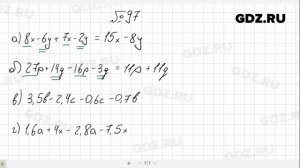 GDZ.RU
№97
а) 8x-6y+7x-2y=15x-8y
б) 27p+14q-16p-3q=11p+11q
в) 3,5b-2,4c-0,6c-0,7b
г) 1,6a+4x-2,8a-7,5x